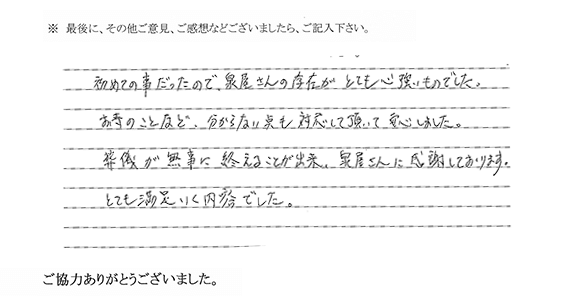 ※ 最後に、その他ご意見、ご感想などございましたら、ご記入下さい。
初めての事だったので、泉屋さんの存在がとても心強いものでした。
お寺のことなど、分からない点も対応して頂いて安心しました。
葬儀が無事に終えることが出来、泉屋さんに感謝しております。
とても満足いく内容でした。
ご協力ありがとうございました。